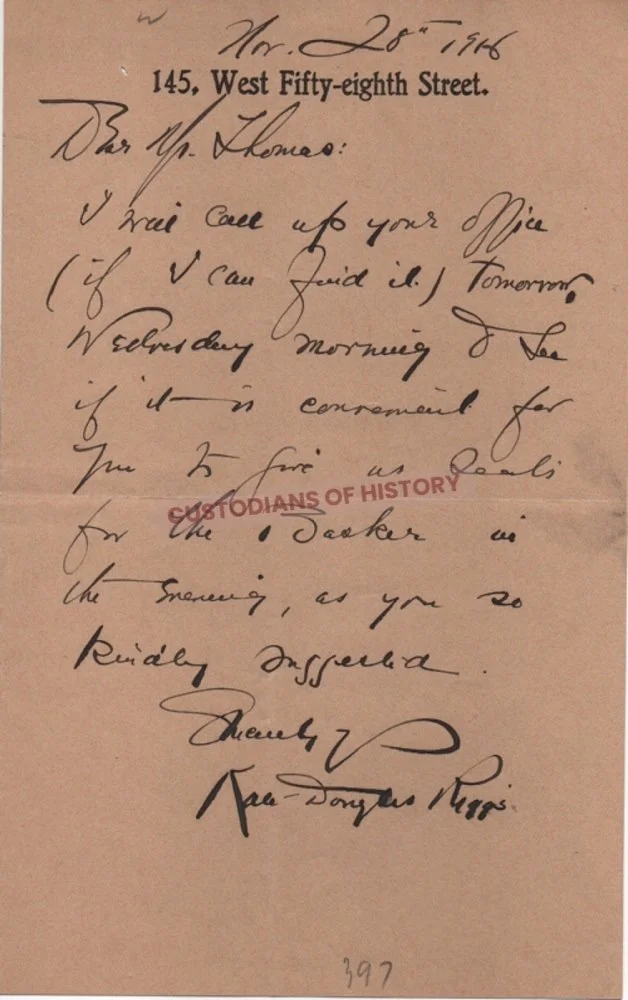 Nov. 28th 1916
145, West Fifty-eighth Street.
Dear Mr. Thomas:
I will call up your office
(if I can find it.) tomorrow,
Wednesday morning & see
if it is convenient for
you to give us seats
for the Basker in
CUSTODIANS OF HISTORY
the evening, as you so
kindly suggested.
Sincerely
Kate Douglas Riggs
397